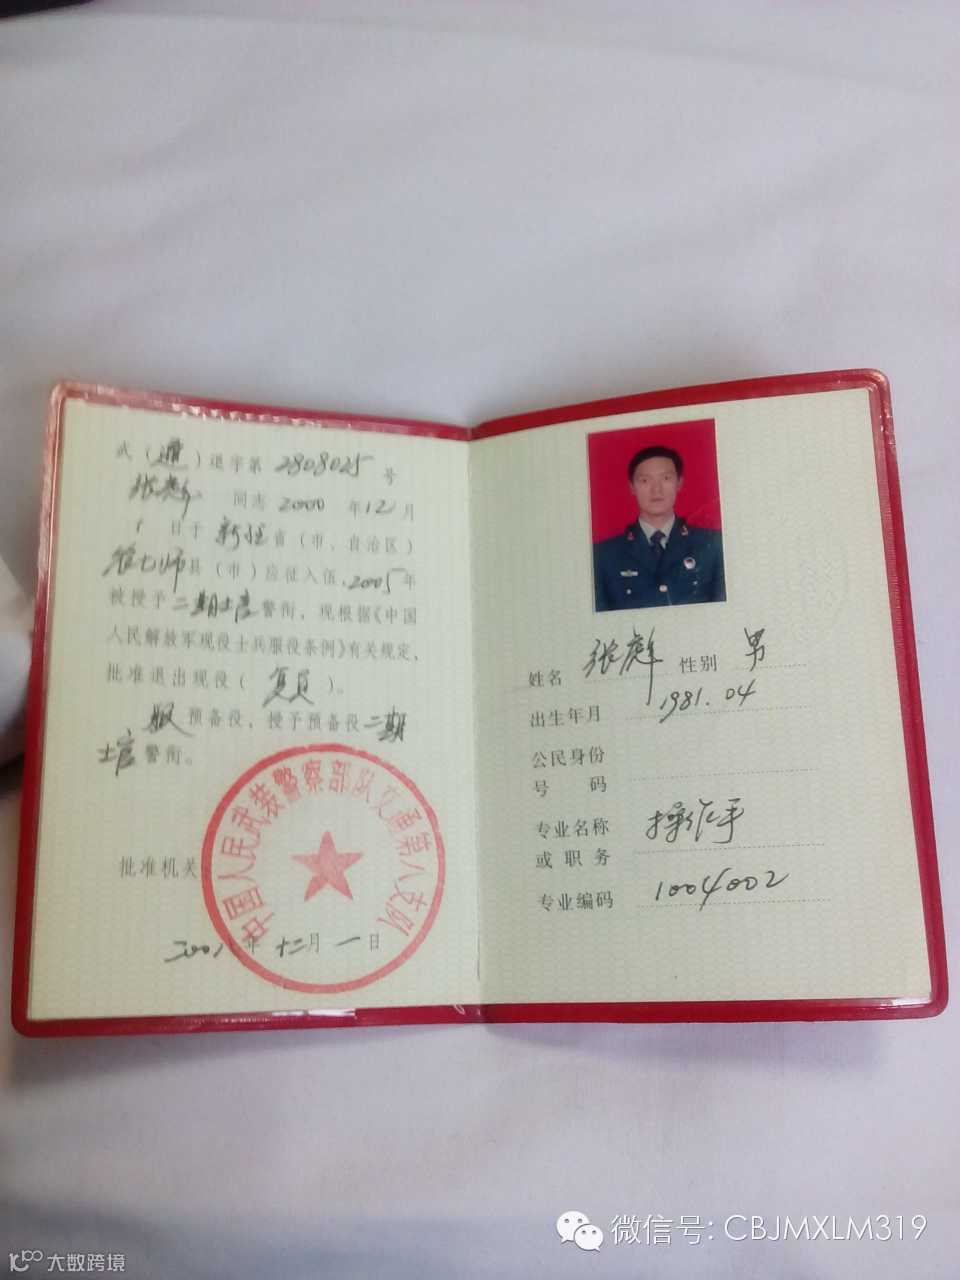 武（通）退字第 2808025 号
张彪 同志 2000 年 12 月
1 日于 新疆 省（市、自治区）
农七师 县（市）应征入伍，2005 年
被授予 二期士官 警衔，现根据《中国
人民解放军现役士兵服役条例》有关规定，
批准退出现役（复员）。
服 预备役，授予预备役 二期
士官 警衔。
中国人民武装警察部队交通第八支队
批准机关
年 十二月 一日
姓名 张彪 性别 男
出生年月 1981.04
公民身份
号 码
专业名称 操作手
或职务
专业编码 1004002
微信号: CBJMXLM319
大数跨境